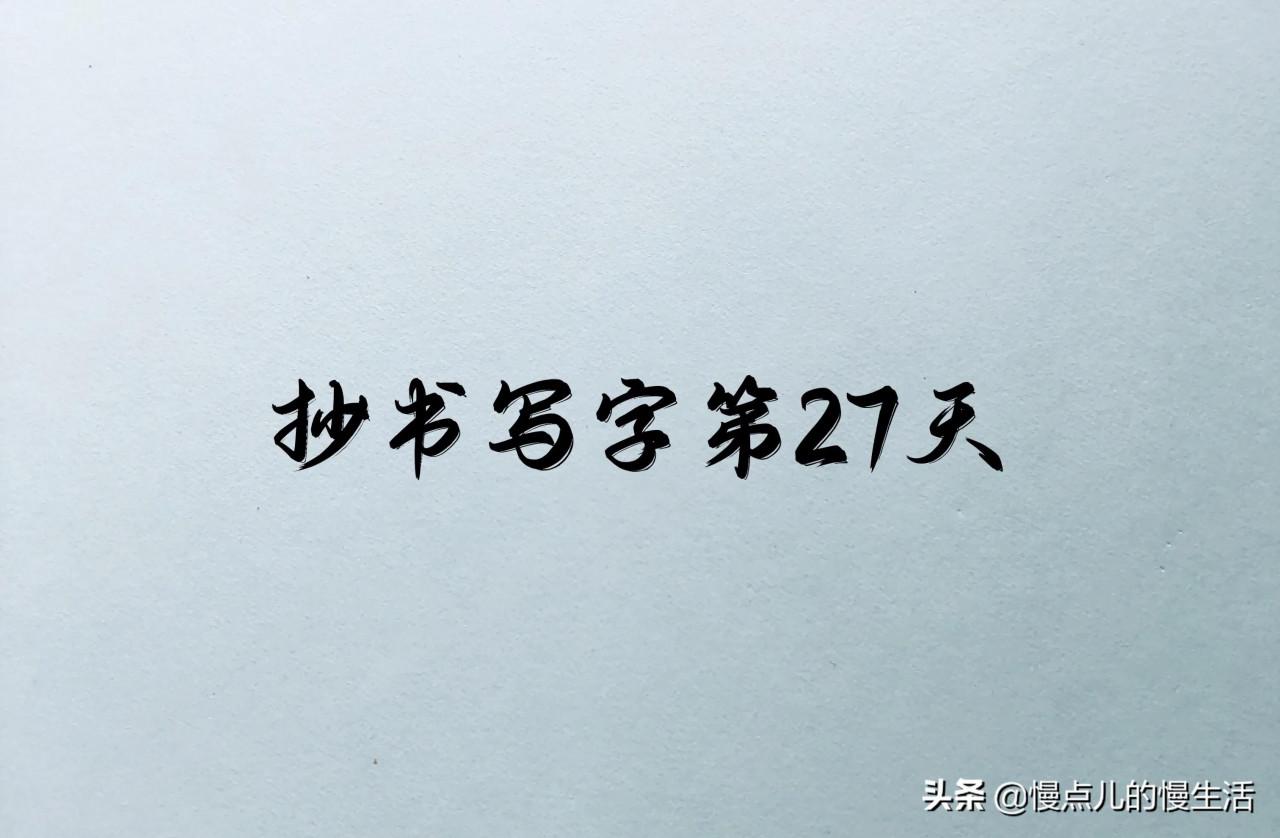 抄书写字第27天
头条 @慢点儿的慢生活